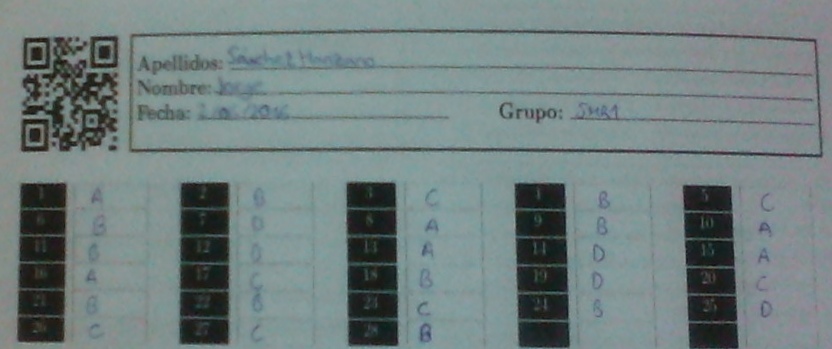 Apellidos: Sánchez Manzano
Nombre: Jorge
Fecha: 2 /2016 Grupo: SMR1
1 A 2 B 3 C 4 B 5 C
6 B 7 D 8 A 9 B 10 A
11 B 12 B 13 A 14 D 15 A
16 A 17 C 18 B 19 D 20 C
21 B 22 B 23 C 24 B 25 D
26 C 27 C 28 B